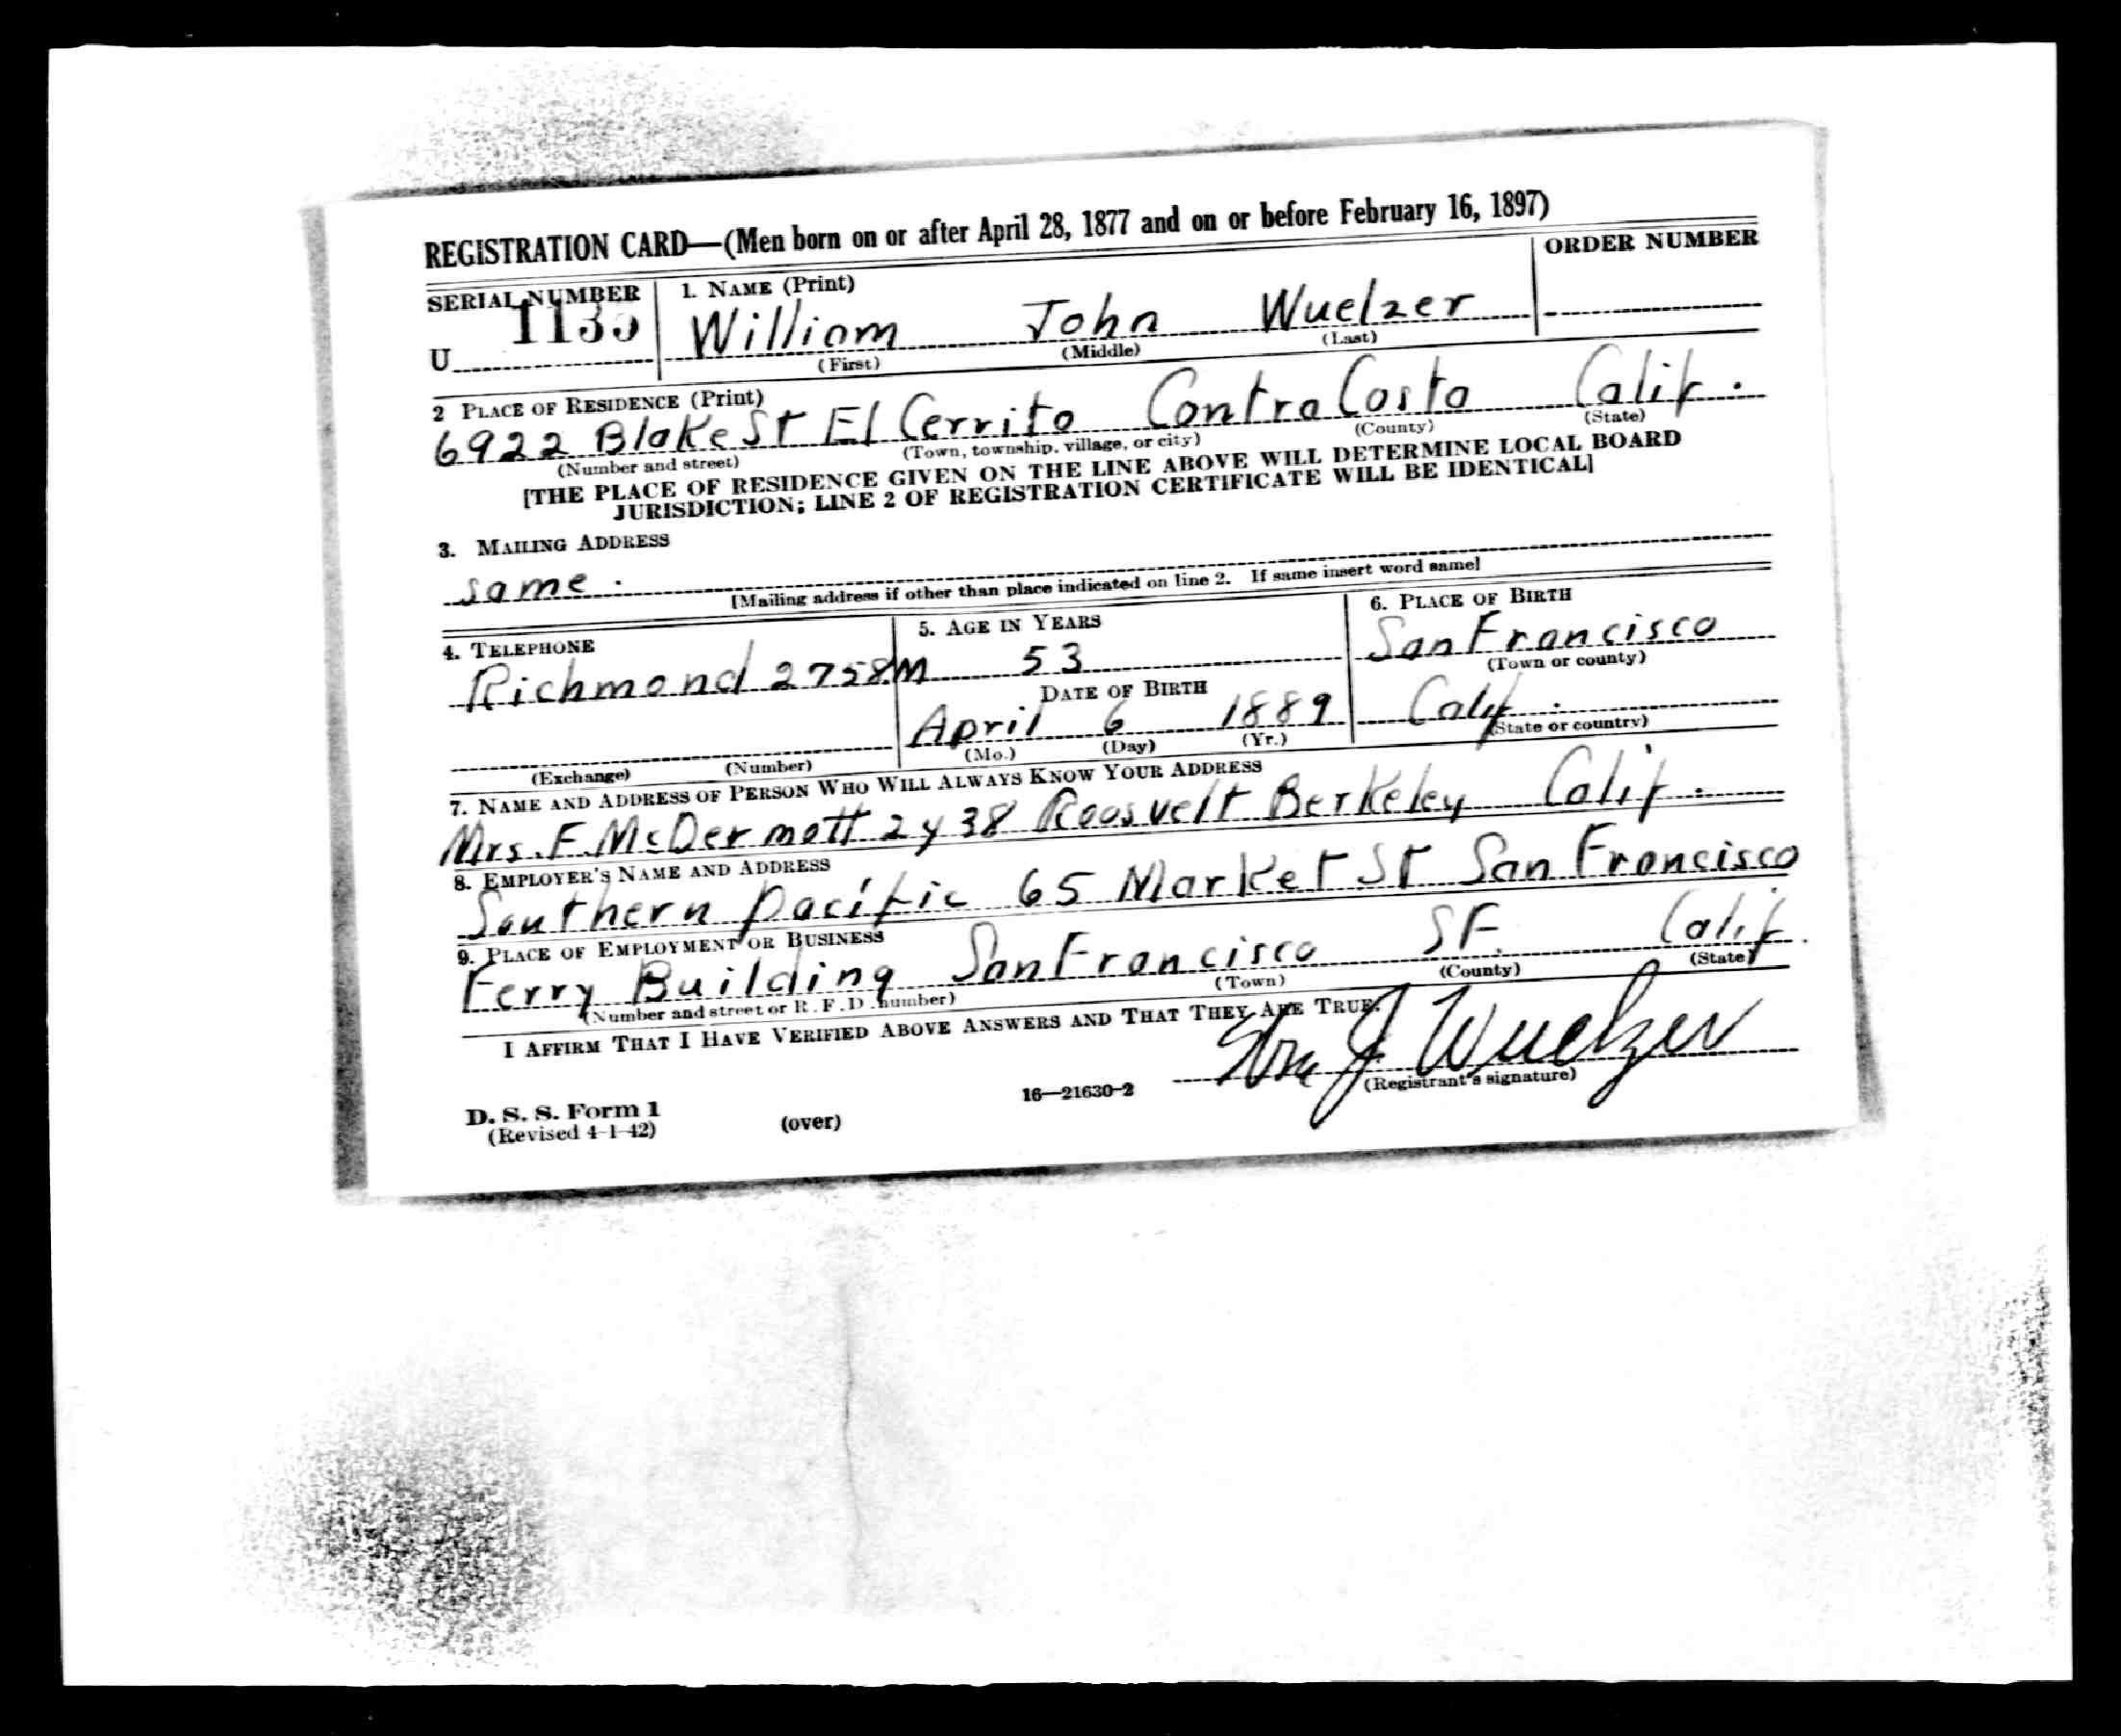 REGISTRATION CARD—(Men born on or after April 28, 1877 and on or before February 16, 1897)
SERIAL NUMBER 1. NAME (Print) ORDER NUMBER
U William John Wuelzer
(First) (Middle) (Last)
2 PLACE OF RESIDENCE (Print)
6922 Blake St El Cerrito Contra Costa Calif.
(Number and street) (Town, township, village, or city) (County) (State)
[THE PLACE OF RESIDENCE GIVEN ON THE LINE ABOVE WILL DETERMINE LOCAL BOARD
JURISDICTION; LINE 2 OF REGISTRATION CERTIFICATE WILL BE IDENTICAL]
3. MAILING ADDRESS
same.
[Mailing address if other than place indicated on line 2. If same insert word same]
4. TELEPHONE 5. AGE IN YEARS 6. PLACE OF BIRTH
Richmond 2758M 53 San Francisco
(Town or county)
DATE OF BIRTH
April 6 1889 Calif.
(Exchange) (Number) (Mo.) (Day) (Yr.) (State or country)
7. NAME AND ADDRESS OF PERSON WHO WILL ALWAYS KNOW YOUR ADDRESS
Mrs. F. McDermott Roosvelt Berkeley Calif.
8. EMPLOYER'S NAME AND ADDRESS
Southern Pacific 65 Market St San Francisco
9. PLACE OF EMPLOYMENT OR BUSINESS
Ferry Building San Francisco SF. Calif.
(Number and street or R. F. D. number) (Town) (County) (State)
I AFFIRM THAT I HAVE VERIFIED ABOVE ANSWERS AND THAT THEY ARE TRUE.
Wm J Wuelzer
D. S. S. Form 1 16—21630-2 (Registrant's signature)
(Revised 4-1-42) (over)